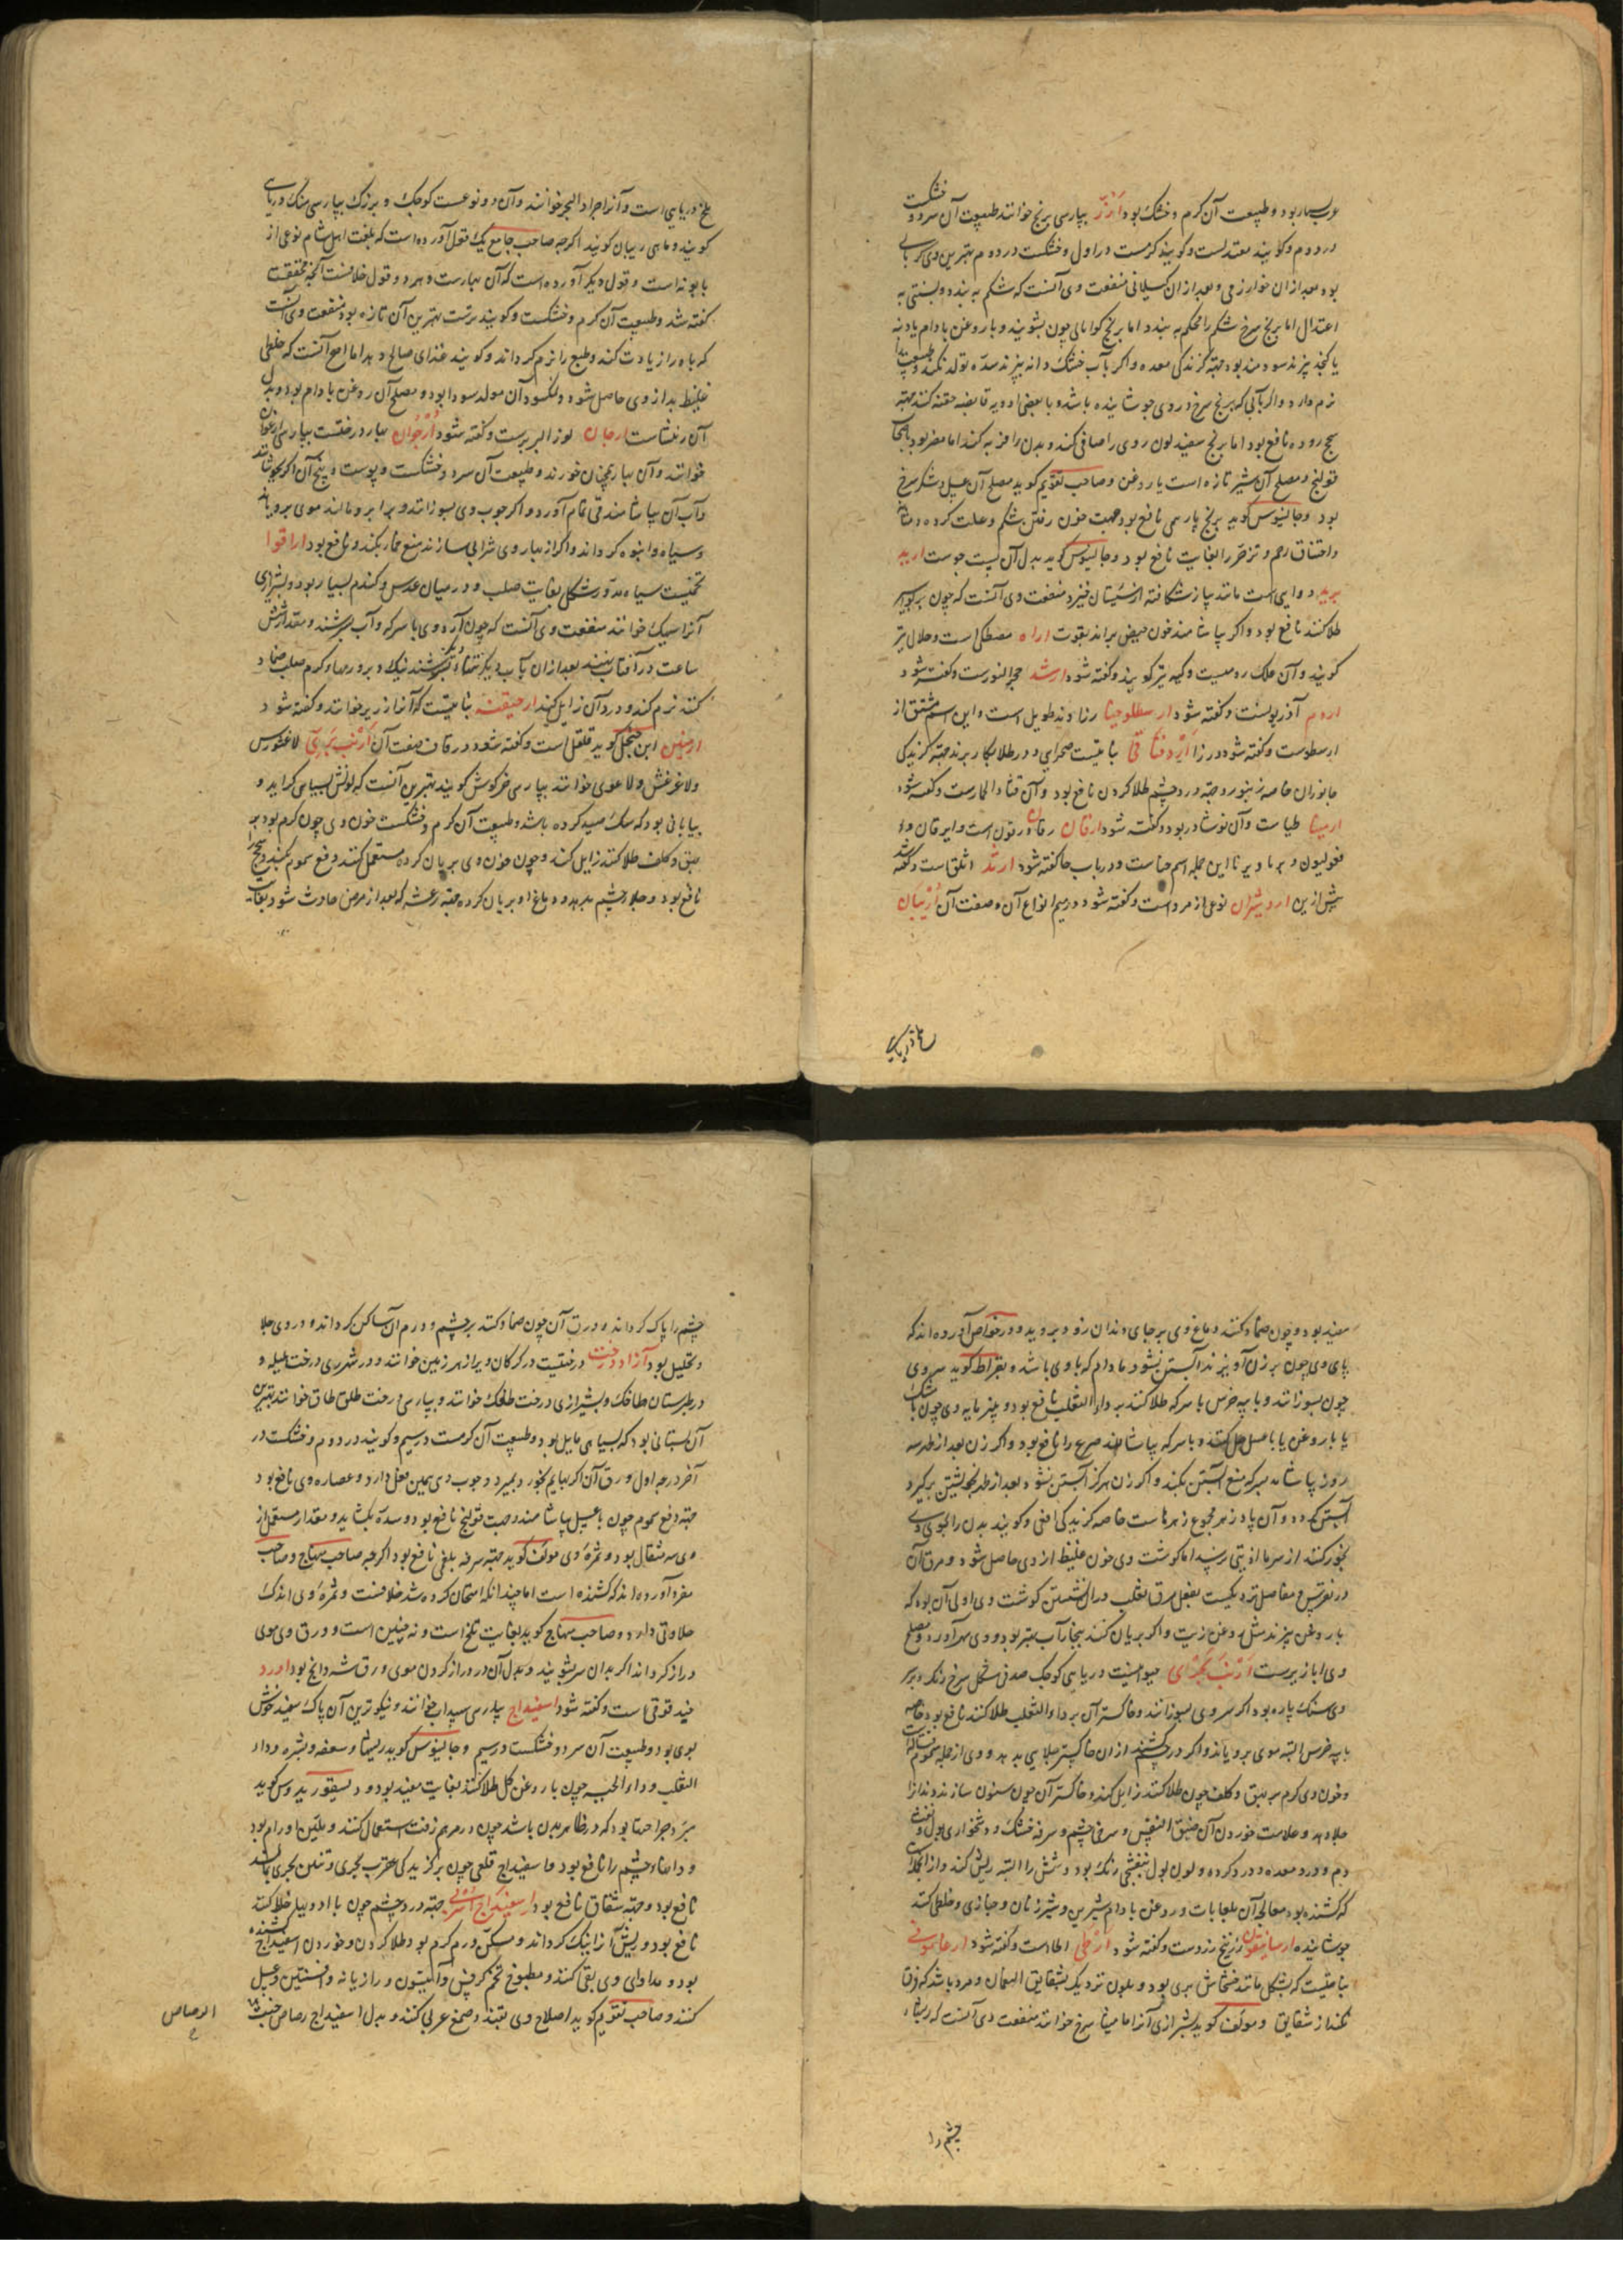 بود و طبیعت آن کرم و خشک بود ارز بپارسی برنج خوانند طبیعت آن سرد و خشکست
در دوم و کویند معتدلست و کویند کرمست در اول و خشکست در دوم بهترین وی کرمانی
بود بعد از ان خوارزمی و بعد از ان کیلانی منفعت وی آنست که شکم به بندد و بستنی به
اعتدال اما برنج سرخ شکم را محکم به بندد اما برنج چون بشویند و با روغن بادام یا دنبه
یا کنجد پزند سودمند بود جهة کزندکی معده و اکر بآب خشک دانه بپزند سده تولد نکند و طبیعت را
نرم دارد و اکر آبی که برنج سرخ در وی جوشانیده باشد و با بعضی ادویه قابضه حقنه کنند جهة
سحج روده نافع بود اما برنج سفید لون روی را صافی کند و بدن را فربه کند اما مضر بود باصحاب
قولنج و مصلح آن شیر تازه است یا روغن و صاحب تقویم کوید مصلح آن عسل و شکر سرخ
بود و جالینوس کوید برنج پارسی نافع بود جهت خون رفتن شکم و علت کرده و مثانه
و اختناق رحم و تزحر را بغایت نافع بود و جالینوس کوید بدل آن پست جوست ارید
برید دوایی است مانند پیاز شکافته از سیستان خیزد منفعت وی آنست که چون بر بواسیر
طلا کنند نافع بود و اکر بیاشامند خون حیض براند بقوت اراه مصطکی است و حلال نیز
کویند و آن علک رومیست و کیه نیز کویند و کفته شود ارشد حجر النورست و کفته شود
اردم آذربوست و کفته شود ارسطلوخیا زراوند طویل است و این اسم مشتق از
ارسطوست و کفته شود در زا اردفنانی نباتیست صحرایی و در طلا بکار برند جهة کزندکی
جانوران خاصه زنبور و جهة درد چشم طلا کردن نافع بود و آن قثاء الحمارست و کفته شود
ارمینا طیاست و آن نوشادر بود و کفته شود ارقان رقان و رقون است و ایرقان و
فغولیون و یرنا و یرنا این جمله اسم حناست و در باب حا کفته شود ارثد اثلق است و کفته شد
پیش ازین اردشیران نوعی از مرو است و کفته شود در میم انواع آن و صفت آن اربیان
ملخ دریایی
ملخ دریایی است و آنرا جراد البحر خوانند و آن دو نوعست کوچک و بزرک بپارسی ملک دریایی
کویند و ماهی ربیان کویند اکرچه صاحب جامع یک قول آورده است که بلغت اهل شام نوعی از
بابونه است و قول دیکر آورده است که آن بهارست و هر دو قول خلافست آنچه محققست
کفته شد و طبیعت آن کرم و خشکست و کویند ترست بهترین آن تازه بود منفعت وی آنست
که باه را زیادت کند و طبع را نرم کرداند و کویند غذای صالح دهد اما اصح آنست که خلطی
غلیظ بد از وی حاصل شود و نمکسود آن مولد سودا بود و مصلح آن روغن بادام بود و بدل
آن رنشاست ارجان لوز البربرست و کفته شود ارجوان بهار درختست بپارسی ارغوان
خوانند و آن بهار همچنان خورند و طبیعت آن سرد و خشکست و پوست و بیخ آن اکر بجوشانند
و آب آن بیاشامند قی تمام آورد و اکر چوب وی بسوزانند و بر ابرو مالند موی برویاند
و سیاه و انبوه کرداند و اکر از بهار وی شرابی سازند منع خمار بکند و نافع بود اراقوا
تخمیست سیاه مدور شکل بغایت صلب و در میان عدس و کندم بسیار بود و بشیرازی
آنرا سیک خوانند منفعت وی آنست که چون آرد وی با سرکه و آب بسرشند و مقدار شش
ساعت در آفتاب نهند بعد از ان بآب دیکر تنها دیکر بسرشند نیک و بر ورمهاء کرم صلب ضماد
کنند نرم کند و درد آن زایل کند ارحیقنه نباتیست که آنرا زریر خوانند و کفته شود
ارمنین ابن جلجل کوید قلقل است و کفته شود در قاف صفت آن ارنب بری لاغورس
ولاغرغش و لاغوی خوانند بپارسی خرکوش کویند بهترین آنست که لونش بسیاهی کراید و
بیابانی بود که سک صید کرده باشد و طبیعت آن کرم و خشکست خون وی چون کرم بود بر
بهق و کلف طلا کنند زایل کند و چون خون وی بریان کرده مستعمل کنند دفع سموم بکند و سحج را
نافع بود و جلاء چشم بدهد و دماغ او بریان کرده جهة رعشه که بعد از مرض حادث شود بغایت
مفید بود و چون ضماد کنند دماغ وی بر جای دندان زود بروید و در خواص آورده اند که
پای وی چون بر زن آویزند آبستن نشود مادام که با وی باشد و بقراط کوید سر وی
چون بسوزانند و با پیه خرس یا سرکه طلا کنند بر داء الثعلب نافع بود و پنیر مایه وی چون با مشک
یا با روغن یا با عسل حل کنند و با سرکه بیاشامند صرع را نافع بود و اکر زن بعد از طهر سه
روز بیاشامد بسرکه منع آبستن بکند و اکر زن هرکز آبستن نشود بعد از طهر بخویشتن برکیرد
آبستن کردد و آن پادزهر مجموع زهرهاست خاصه کزیدکی افعی و کویند بدن را بموی وی
بخور کنند از سرما اذیتی نرسد اما کوشت وی خون غلیظ از وی حاصل شود و مرق آن
در نقرس و مفاصل نزدیکست بفعل مرق ثعلب در آن نشستن کوشت وی اولی آن بود که
با روغن پزند مثل روغن زیت و اکر بریان کنند ببخار آب بهتر بود و وی سهر آورد و مصلح
وی ابازیرست ارنب بحری حیوانیست دریایی کوچک صدفی شکل سرخ رنک و بر سر
وی سنک پاره بود اکر سر وی بسوزانند و خاکستر آن بر داء الثعلب طلا کنند نافع بود خاصه
با پیه خرس البته موی برویاند و اکر در چشم کشند از ان خاکستر جلایی بدهد و وی از جمله سموم قتاله است
و خون وی کرم بر بهق و کلف چون طلا کنند زایل کند و خاکستر آن چون سنون سازند دندانرا
جلا دهد و علامت خوردن آن ضیق النفس و سرخی چشم و سرفه خشک و دشخواری بول و نفث
دم و درد معده و درد کرده و لون بول بنفشجی رنک بود و شش را البته ریش کند و از
که کشنده بود معالجه آن بلعابات و روغن بادام شیرین و شیر زنان و خبازی و خطمی کنند
جوشانیده ارسانیقون زرنیخ زردست و کفته شود ارطی ارطاست و کفته شود ارغامونی
نباتیست که بشکل مانند خشخاش بری بود و بلون نزدیک بشقایق النعمان و مرد باشد که فرق
نکند از شقایق و مولف کوید بشیرازی آنرا مامیثا سرخ خوانند منفعت وی آنست که ریشهاء
چشم را
چشم را پاک کرداند و ورق آن چون ضماد کنند بر چشم و ورم آن ساکن کرداند و در وی جلا
و تحلیل بود آزاد درخت درختیست در کرکان ویرا زهر زمین خوانند و در شهر ری درخت هلیله و
در طبرستان طاخک و بشیرازی درخت طلخک خوانند و بپارسی درخت طلق طاق خوانند بهترین
آن بستانی بود که بسیاهی مایل بود و طبیعت آن کرمست در سیم و کویند در دوم و خشکست در
آخر درجه اول ورق آن اکر بهایم بخورد بمیرد و چوب وی همین فعل دارد و عصاره وی نافع بود
جهة دفع سموم چون با عسل بیاشامند و جهت قولنج نافع بود و سده بکشاید و مقدار مستعمل از
وی سه مثقال بود و ثمره وی مولف کوید جهة سرفه بلغمی نافع بود اکرچه صاحب منهاج و صاحب
مفرده آورده اند که کشنده است اما چندانکه امتحان کرده شد خلافست و ثمره وی اندک
حلاوتی دارد و صاحب منهاج کوید بغایت تلخ است و نه چنین است و ورق وی موی
دراز کرداند اکر بدان سر بشویند و بدل آن در دراز کردن موی ورق شهدانج بود اورد
خندقوقی است و کفته شود اسفیداج بپارسی سپیداب خوانند و نیکوترین آن پاک سفید خوش
بوی بود و طبیعت آن سرد و خشکست در سیم و جالینوس کوید ریشها و سعفه و بثره و داء
الثعلب و داء الحیه چون با روغن کل طلا کنند بغایت مفید بود و دیسقوریدوس کوید
مبرد جراحتها بود که در ظاهر بدن باشد چون در مرهم زفت استعمال کنند و ملین اورام بود
و درد چشم را نافع بود و اسفیداج قلعی چون بر کزیدکی عقرب بحری و تنین بحری بمالند
نافع بود و جهة شقاق نافع بود اسفیداج جهة درد چشم چون با ادویها خلط کنند
نافع بود و ریش آنرا نیک کرداند و مسکن ورم کرم بود طلا کردن و خوردن اسفیداج کشنده
بود و مداوای وی بقی کنند و مطبوخ تخم کرفس و انیسون و رازیانه و افسنتین و عسل
کنند و صاحب تقویم کوید اصلاح وی بقند و صمغ عربی کنند و بدل اسفیداج رصاص خبث
الرصاص